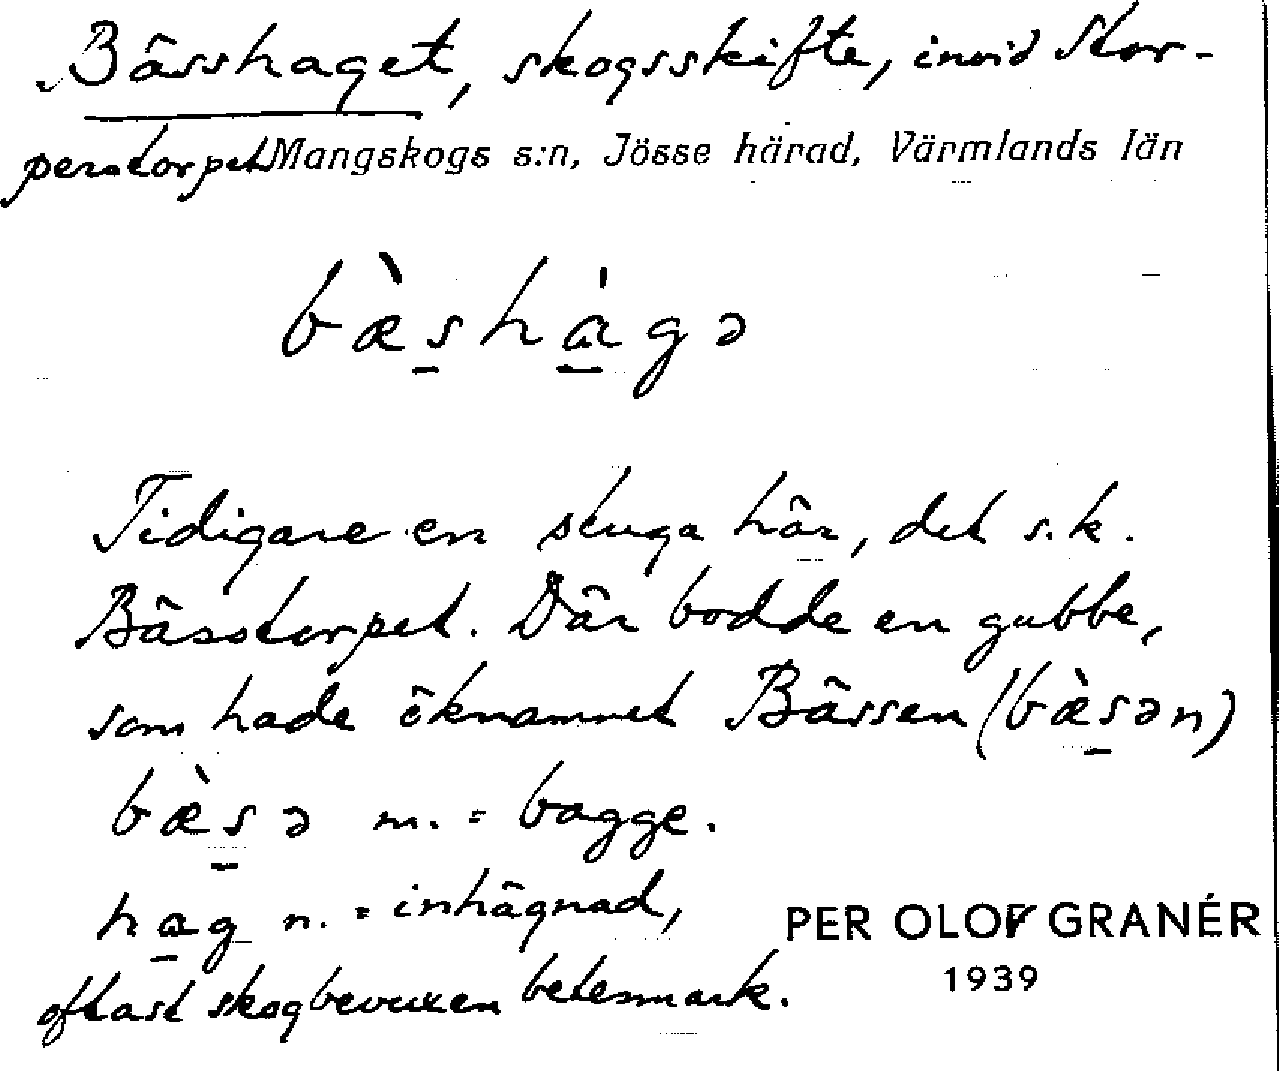 Bässhaget, skogsskifte, invid Stor-
perstorpet Mangskogs s:n, Jösse härad, Värmlands län
bæ̀s̱hа̱̍gə
Tidigare en stuga här, det s.k.
Bässtorpet. Där bodde en gubbe,
som hade öknamnet Bässen (bæ̀s̱ən)
bæ̀s̱ə m. = bagge.
ha̱g n. = inhägnad,
oftast skogbevuxen betesmark.
PER OLOF GRANÉR
1939